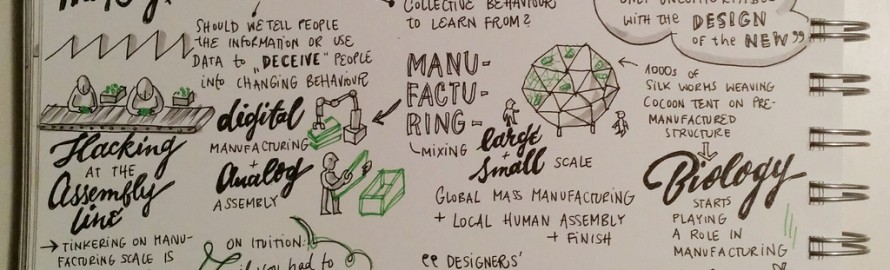 SHOULD WE TELL PEOPLE
THE INFORMATION OR USE
DATA to "DECEIVE" PEOPLE
into CHANGING BEHAVIOUR
COLLECTIVE BEHAVIOUR
TO LEARN FROM?
WITH the DESIGN
of the NEW"
Hacking
AT THE
Assembly
line
→ TINKERING ON MANU-
FACTURING SCALE IS
digital
MANUFACTURING
+
Analog
ASSEMBLY
ON ITUITION:
if you had to
MANU-
FACTU-
RING-
MIXING large
+
small SCALE
GLOBAL MASS MANUFACTURING
+ LOCAL HUMAN ASSEMBLY
+ FINISH
DESIGNERS'
1000s OF
SILK WORMS WEAVING
COCOON TENT ON PRE-
MANUFACTURED
STRUCTURE
Biology
STARTS
PLAYING
A ROLE IN
MANUFACTURING